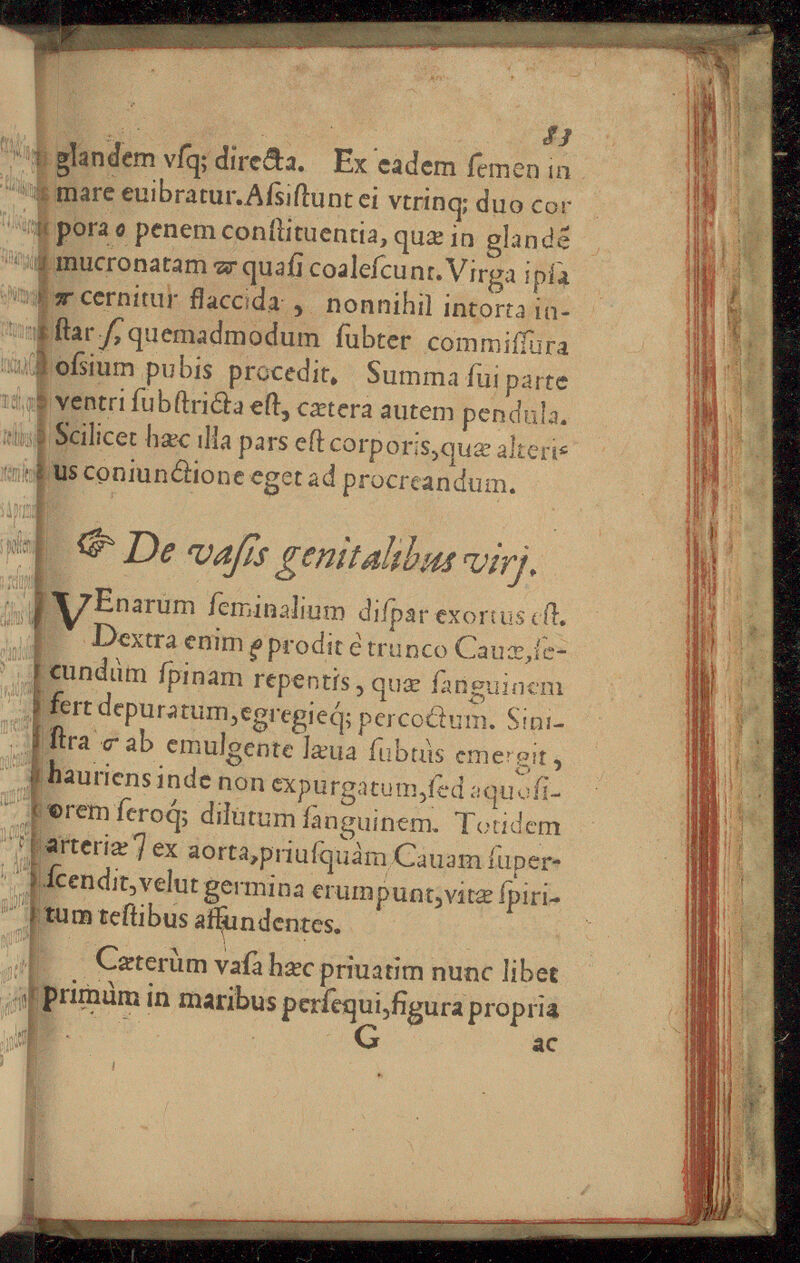 53
glandem vſq; directa. Ex eadem ſemen in
mare euibratur. Aſsiſtunt ei vtrinq; duo cor
pora o penem conſtituentia, quæ in glandé
mucronatam & quaſi coaleſcunt. Virga ipſa
cernitur flaccida, nonnihil intorta in-
ſtar ſ, quemadmodum ſubter commiſſura
oſsium pubis procedit, Summa ſui parte
ventri ſubſtricta eſt, cætera autem pendula.
Scilicet hæc illa pars eſt corporis, quæ alteri⸗
us coniunctione eget ad procreandum.
De vaſis genitalibus virj.
VEnarum ſeminalium diſpar exortus eſt.
Dextra enim e prodit è trunco Cauæ, ſe-
cundùm ſpinam repentis, quæ ſanguinem
fert depuratum, egregieq́; percoctum. Sini-
ſtra c ab emulgente læua ſubtùs emergit,
hauriens inde non expurgatum, ſed aquoſi-
orem ſeroq́; dilùtum ſanguinem. Totidem
arteriæ ] ex aorta, priuſquàm Cauam ſuper⸗
ſcendit, velut germina erumpunt, vitæ ſpiri-
tum teſtibus affundentes.
Cæterùm vaſa hæc priuatim nunc libet
primùm in maribus perſequi, figura propria
G ac